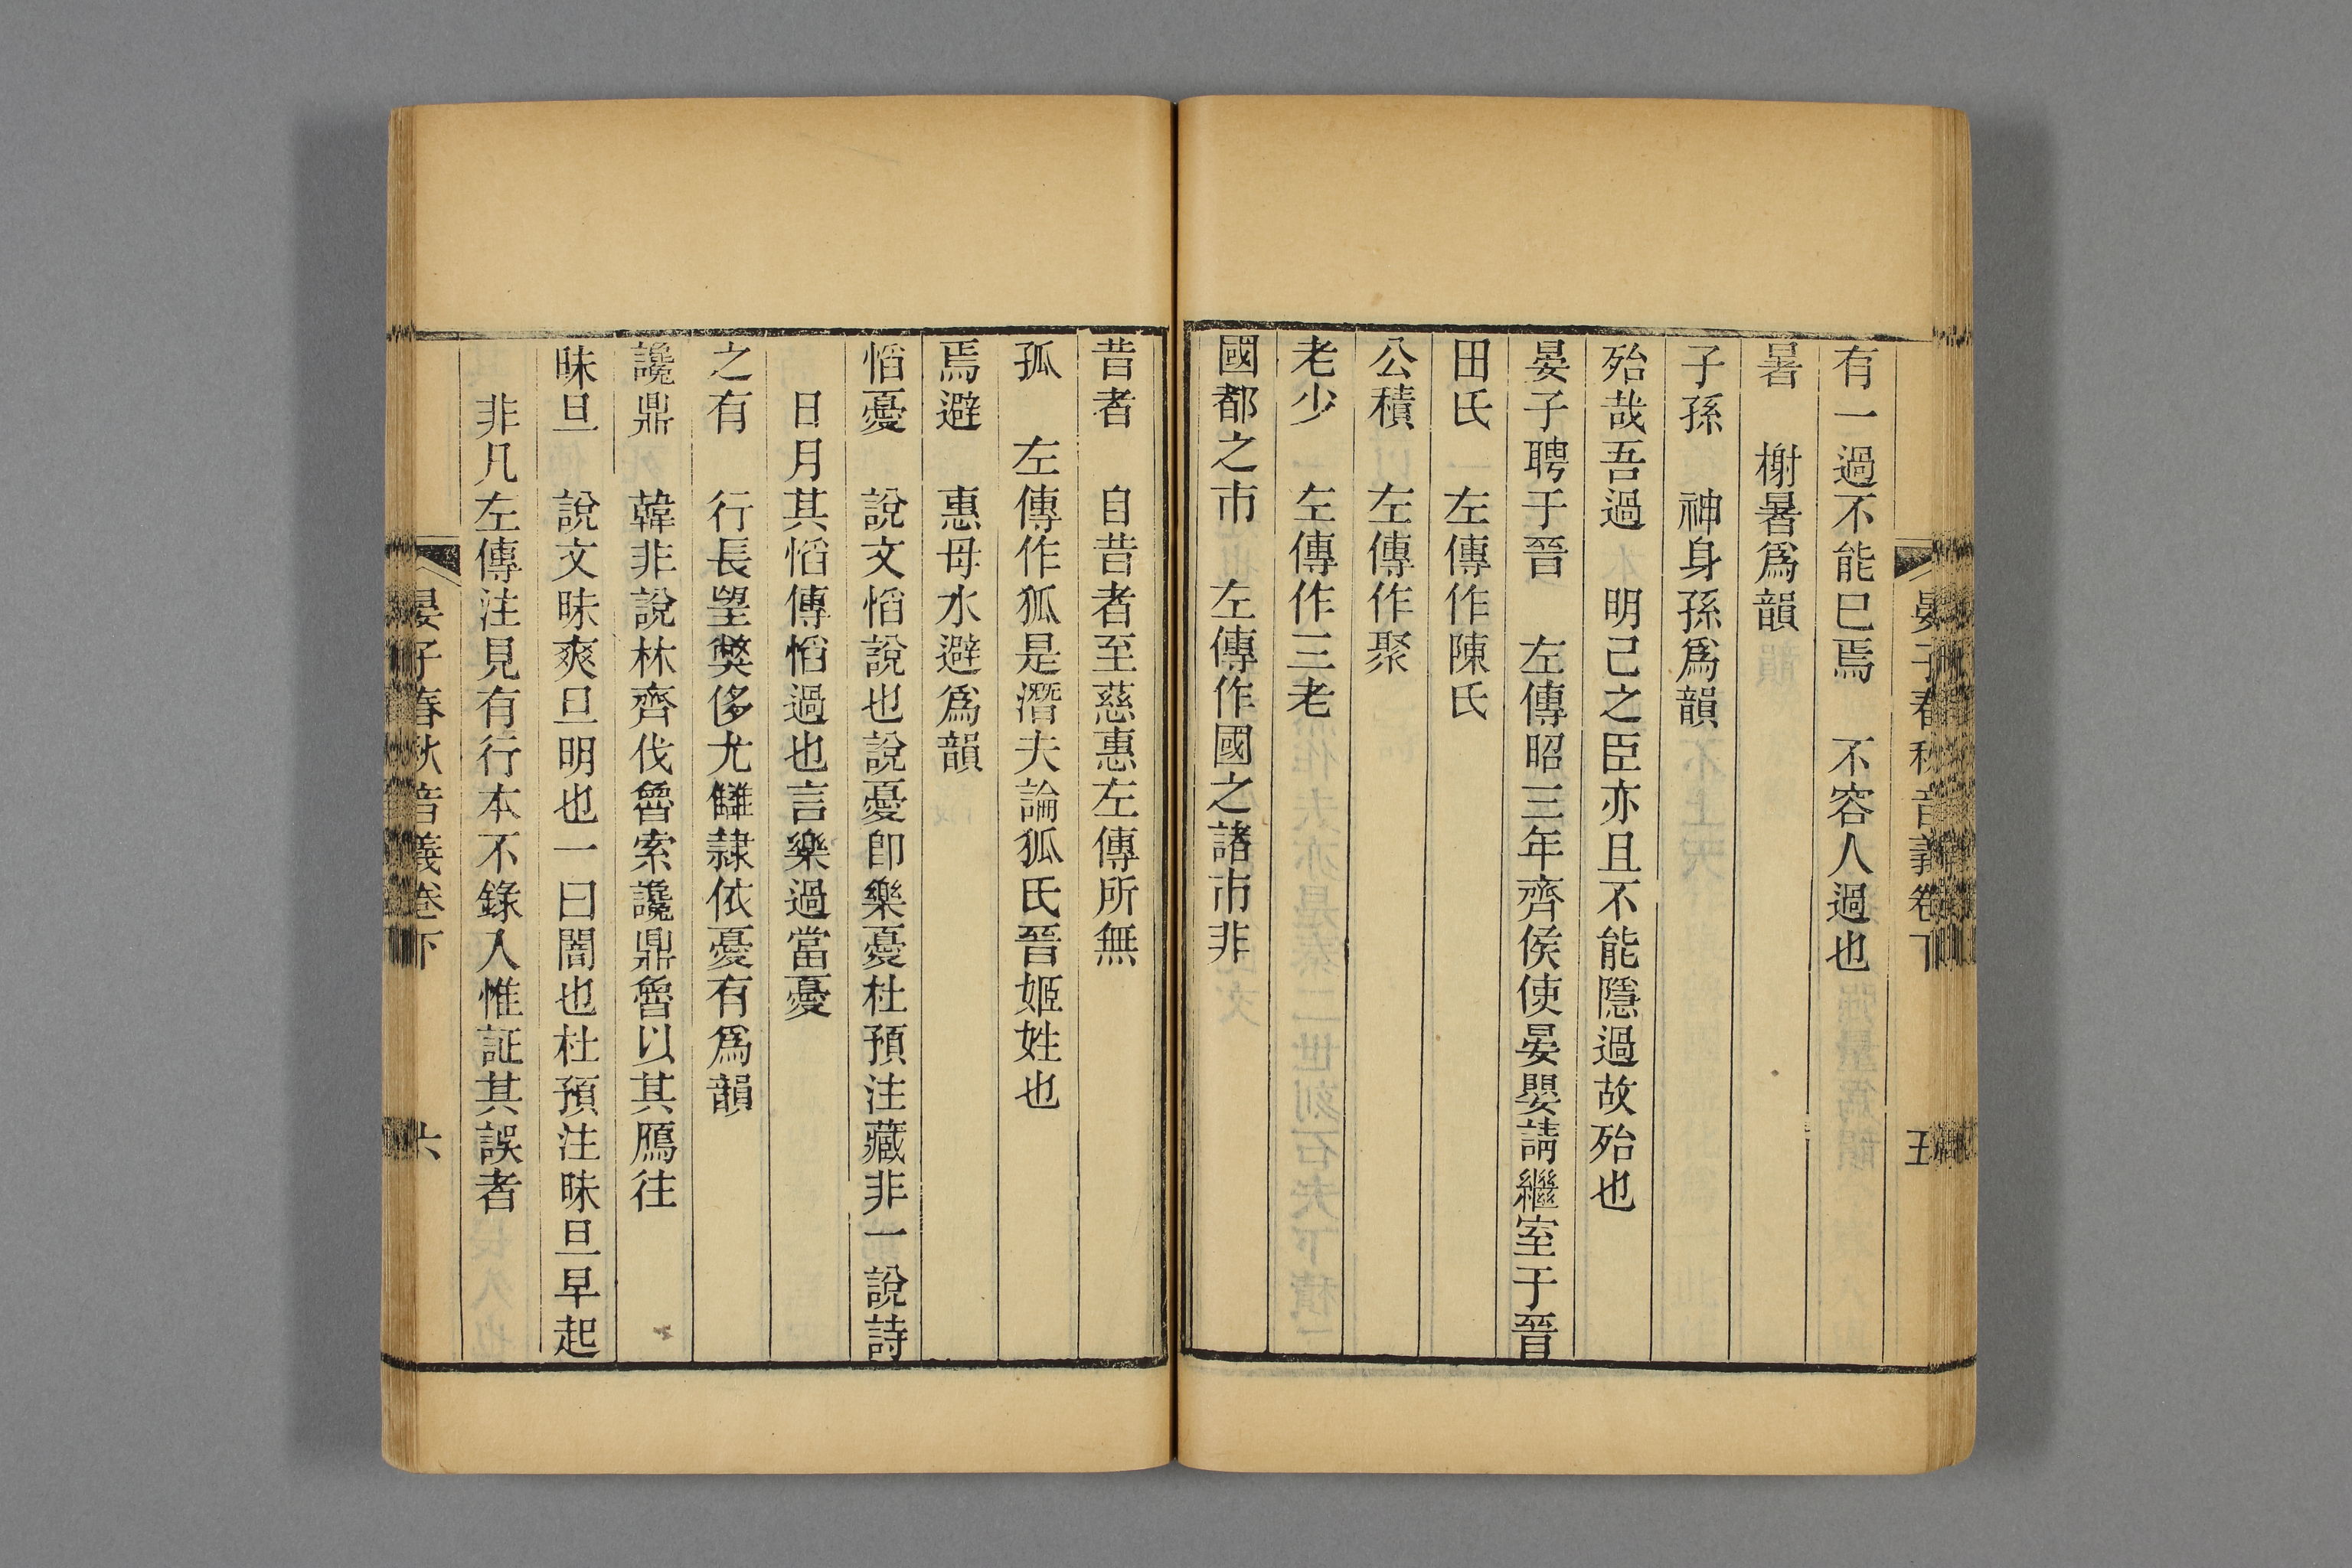 晏子春秋音義卷下 五
有一過不能巳焉 不容人過也
暑 榭暑爲韻
子孫 神身孫爲韻
殆哉吾過 明己之臣亦且不能隱過故殆也
晏子聘于晉 左傳昭三年齊侯使晏嬰請繼室于晉
田氏 左傳作陳氏
公積 左傳作聚
老少 左傳作三老
國都之市 左傳作國之諸市非
昔者 自昔者至慈惠左傳所無
孤 左傳作狐是潛夫論狐氏晉姬姓也
焉避 惠母水避爲韻
慆憂 說文慆說也說憂卽樂憂杜預注藏非一說詩
日月其慆傳慆過也言樂過當憂
之有 行長朢獘侈尤讎隸依憂有爲韻
讒鼎 韓非說林齊伐魯索讒鼎魯以其鴈往
昧旦 說文昧爽旦明也一曰闇也杜預注昧旦早起
非凡左傳注見有行本不錄入惟証其誤者
晏子春秋音義卷下 六